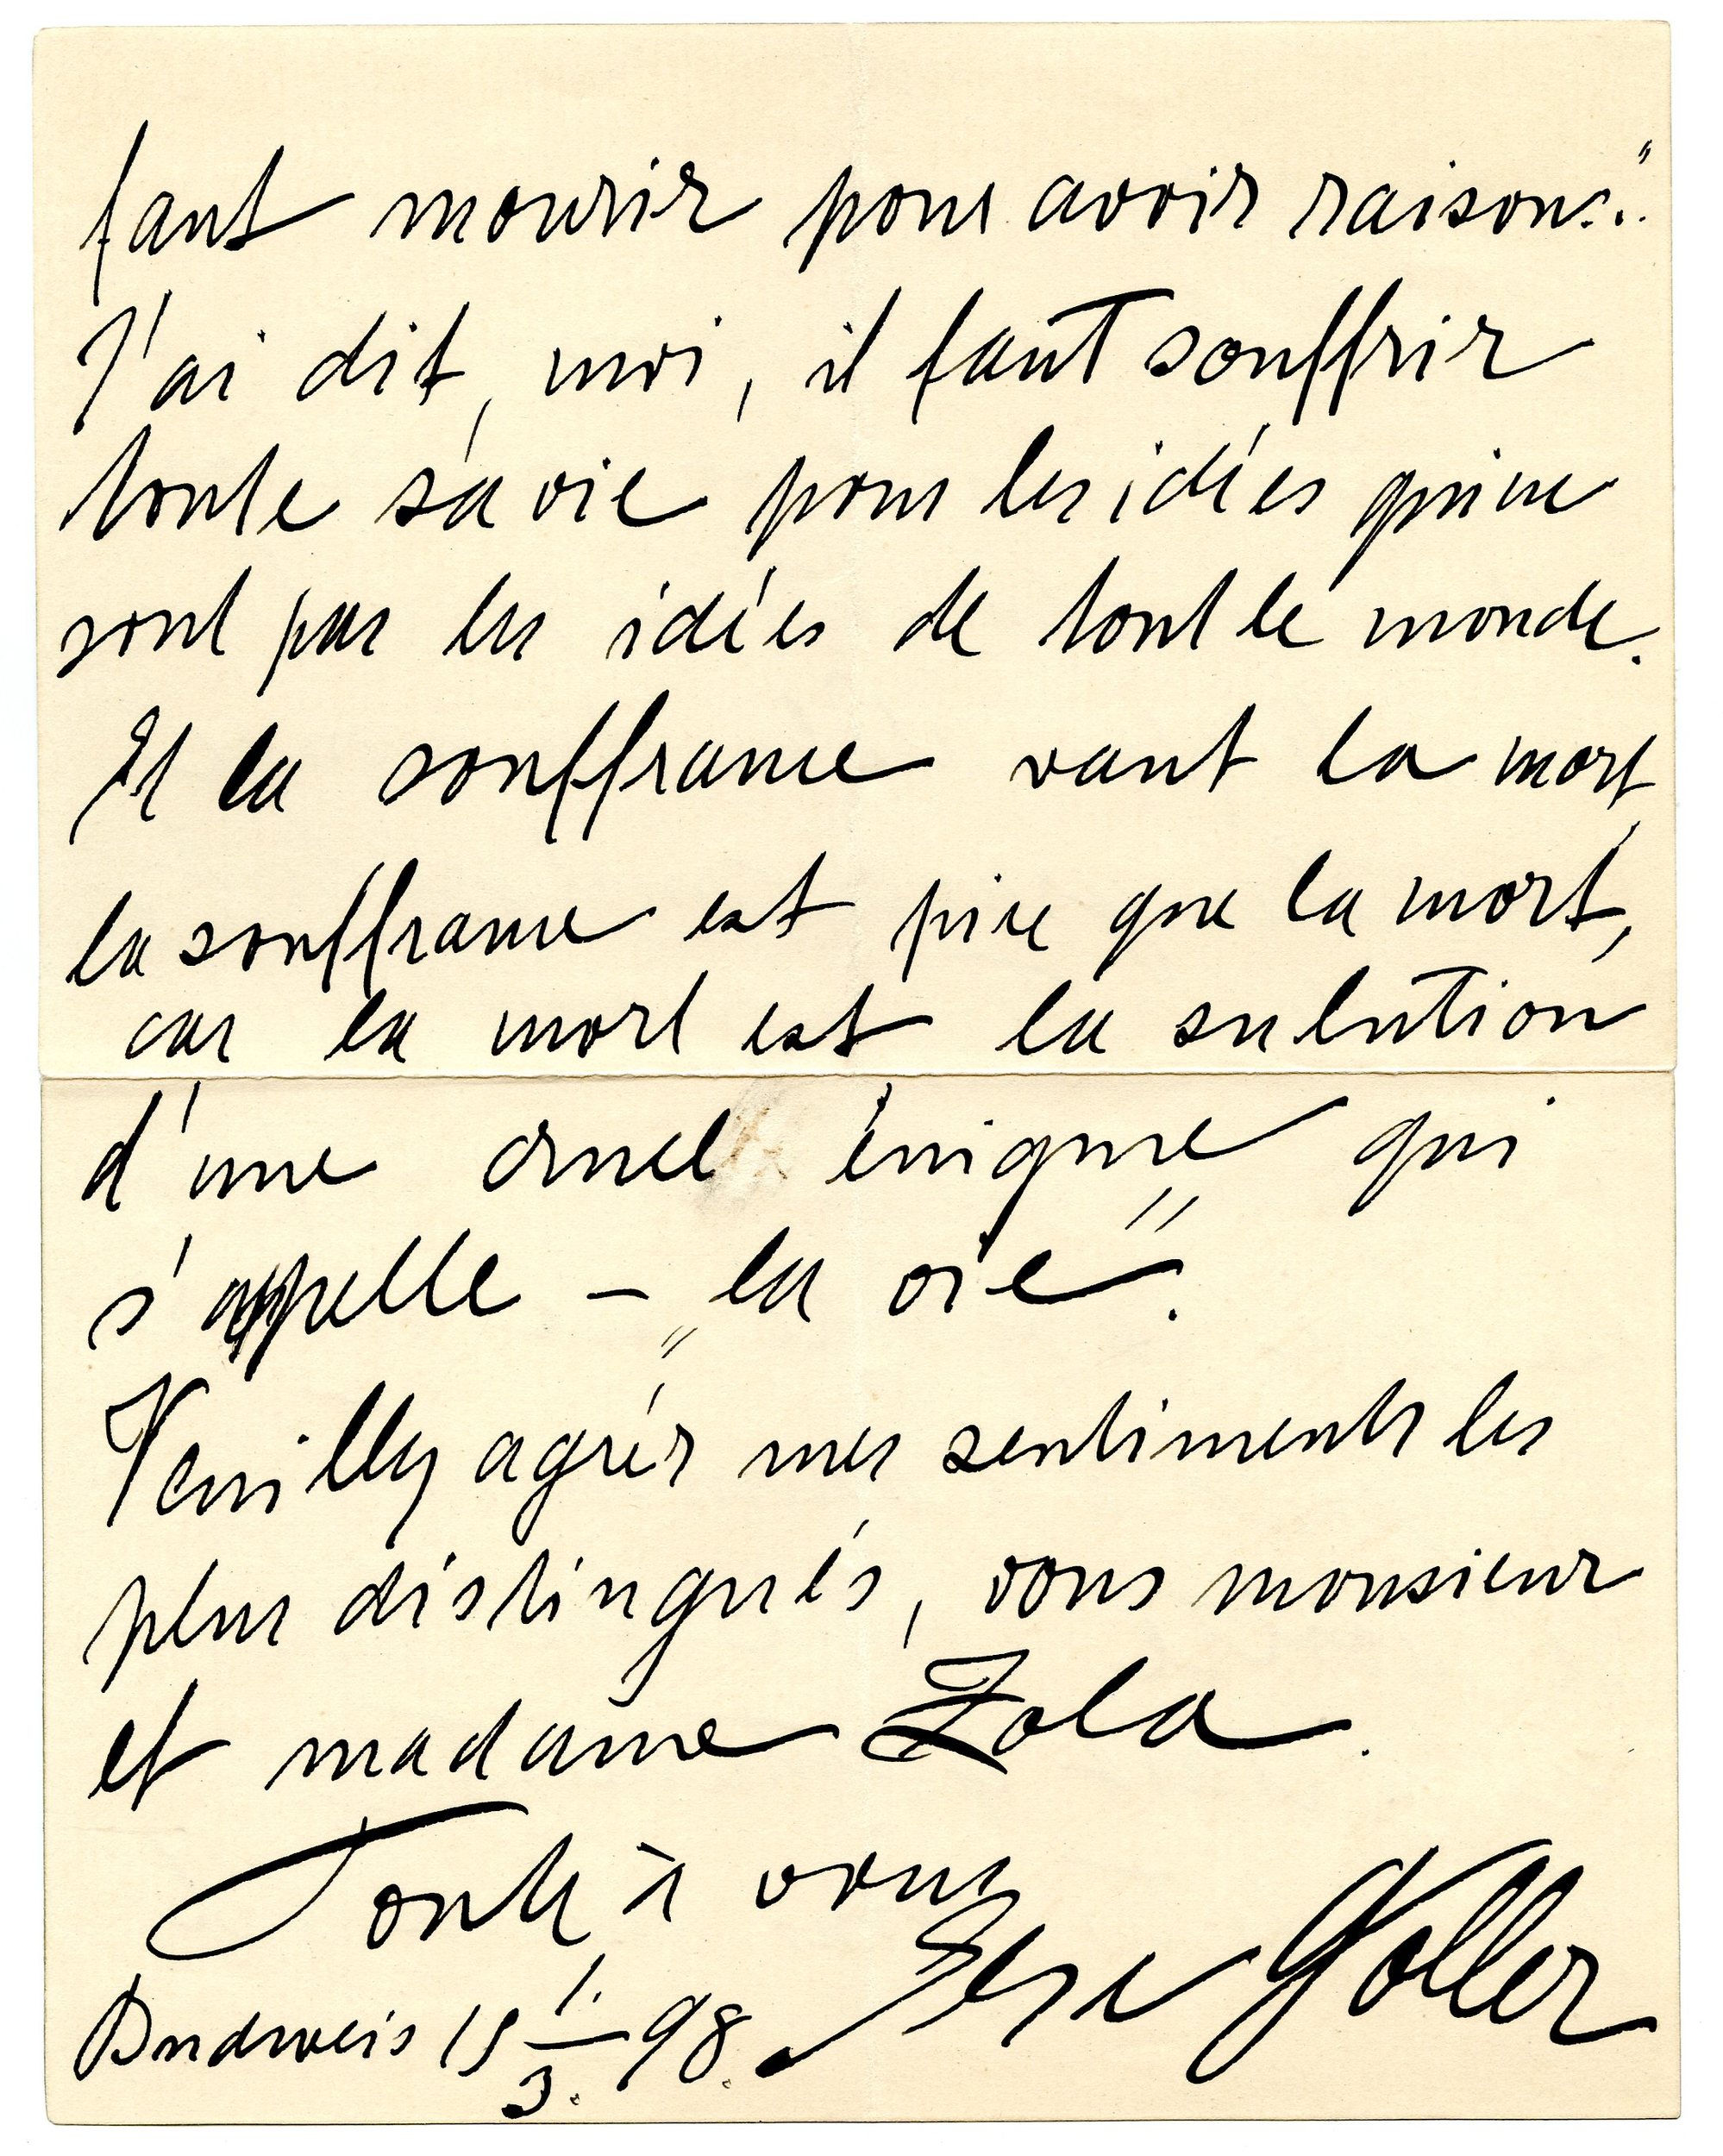 faut mourir pour avoir raison..."
J'ai dit, moi, il faut souffrir
toute sa vie pour les idées qui ne
sont pas les idées de tout le monde.
Et la souffrance vaut la mort,
la souffrance est pire que la mort,
car la mort est la sulution
d'une cruel énigme qui
s'appelle – „la vie".
Veuillez agréér mes sentiments les
plus distingués, vous monsieur
et madame Zola.
Toute à vous
Koller
Budweis 15 1./3. 98.